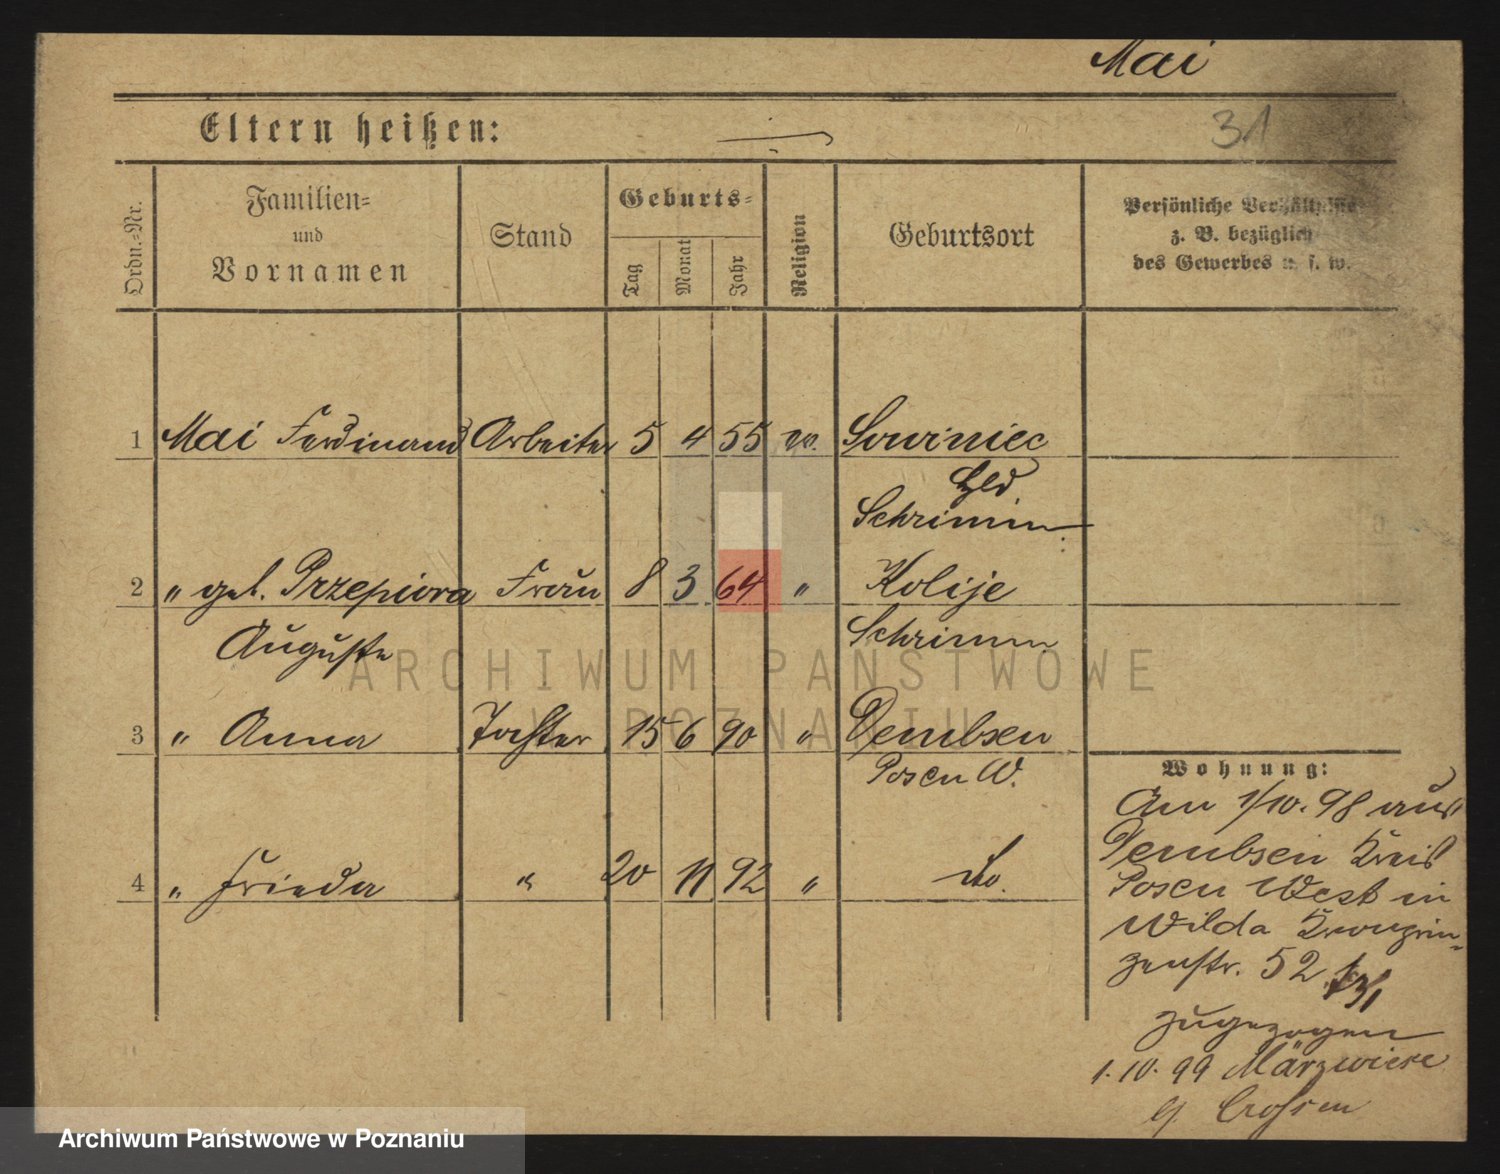 Mai
31
Eltern heißen:
Ordn.-Nr.
Familien-
und
Vornamen
Stand
Geburts-
Tag
Monat
Jahr
Religion
Geburtsort
Persönliche Verhältnisse
z. B. bezüglich
des Gewerbes u. s. w.
1 Mai Ferdinand Arbeiter 5 4 55 ev. Sowiniec
Schrimm
2 " geb. Przepiora Frau 8 3 64 " Kolije
Auguste Schrimm
ARCHIWUM PAŃSTWOWE
W POZNANIU
3 " Anna Tochter 15 6 90 " Dembsen
Posen W.
4 " Frieda " 20 11 92 " do.
Wohnung:
Am 1/10. 98 aus
Dembsen Kreis
Posen West in
Wilda Kronprin-
zenstr. 52
zugezogen
1. 10. 99 Märzwiese
Crossen
Archiwum Państwowe w Poznaniu